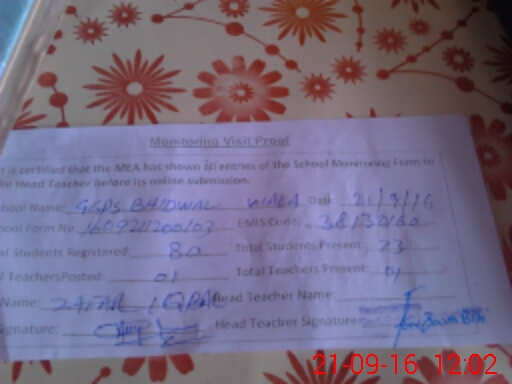 Monitoring Visit Proof
It is certified that the MEA has shown all entries of the School Monitoring Form to
the Head Teacher before its online submission.
School Name: GGPS BHIDWAL WALA Date: 21/9/16
School Form No. EMIS Code:
Students Registered: 80 Total Students Present: 73
Teachers Posted: 01 Total Teachers Present: 01
Name: ZAFAR IQBAL Head Teacher Name:
Signature: Head Teacher Signature:
21-09-16 12:02